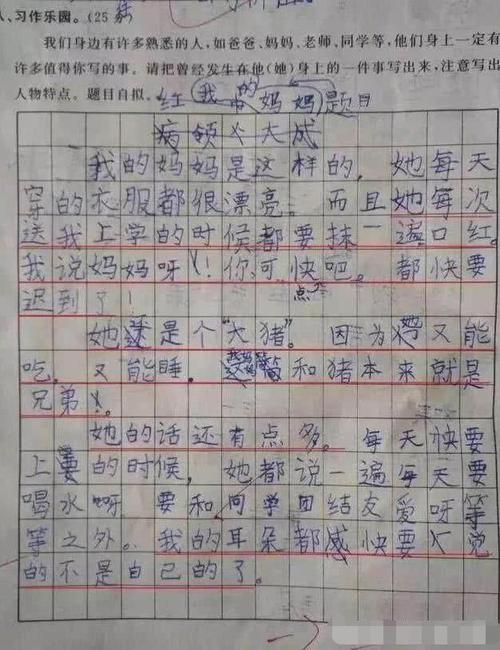 、习作乐园。(25
我们身边有许多熟悉的人,如爸爸、妈妈、老师、同学等,他们身上一定有
许多值得你写的事。请把曾经发生在他(她)身上的一件事写出来,注意写出
人物特点。题目自拟。
我的妈妈 题目
我的妈妈是这样的,她每天
穿的衣服都很漂亮。而且她每次
送我上学的时候都要抹一遍口红。
我说妈妈呀!你可快点吧。都快要
迟到了!
她还是个“大猪”。因为 又能
吃,又能睡, 和猪本来就是
兄弟。
她的话还有点多。每天快要
上 的时候,她都说一遍每天要
喝水呀 要和同学团结友爱呀等
等之外。我的耳朵都感快要 觉
的不是自己的了。